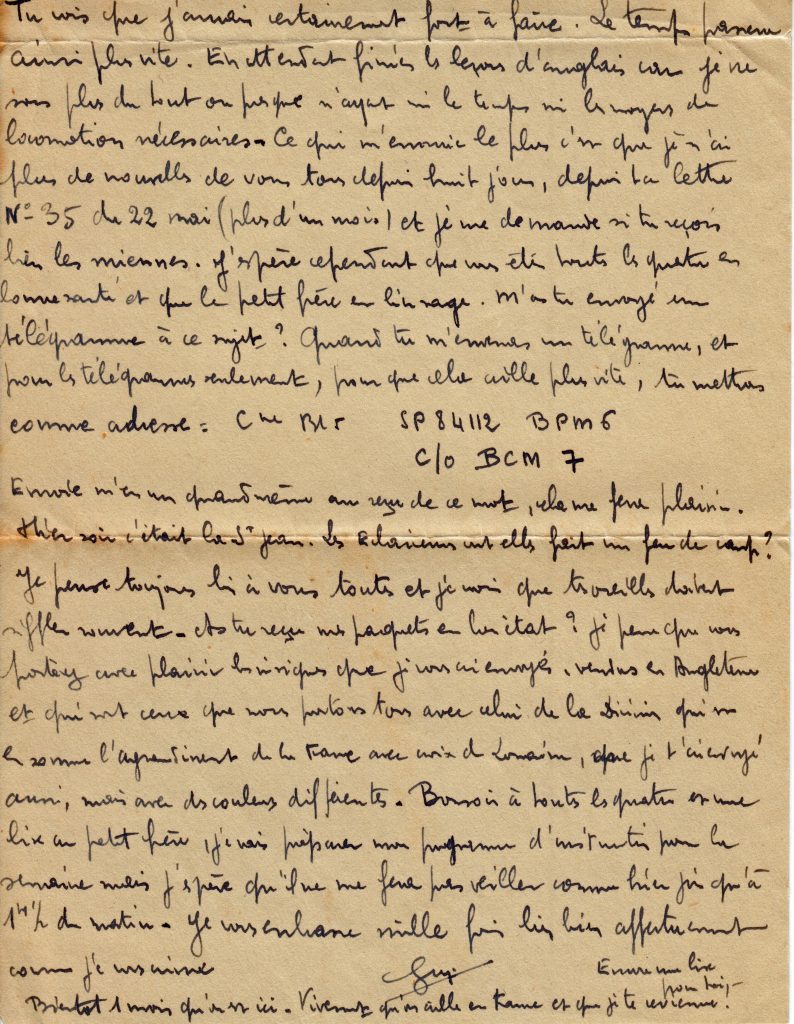 Tu vois que j'aurais certainement fort à faire. Le temps passera
ainsi plus vite. En attendant finies les leçons d'anglais car je ne
sors plus du tout ou presque n'ayant ni le temps ni les moyens de
locomotion nécessaires. Ce qui m'ennuie le plus c'est que je n'ai
plus de nouvelles de vous tous depuis huit jours, depuis ta lettre
N° 35 du 22 mai (plus d'un mois) et je me demande si tu reçois
bien les miennes. J'espère cependant que vous êtes toutes les quatre en
bonne santé et que le petit frère est bien sage. M'as tu envoyé un
télégramme à ce sujet ? Quand tu m'enverras un télégramme, et
pour les télégrammes seulement, pour que cela aille plus vite, tu mettras
comme adresse = Cne SP 84112 BPM 6
C/O BCM 7
Envoie m'en un quand même au reçu de ce mot, cela me fera plaisir.
Hier soir c'était la St Jean. Les Eclaireuses ont elles fait un feu de camp ?
Je pense toujours bien à vous toutes et je crois que tes oreilles doivent
siffler souvent. As tu reçu mes paquets en bon état ? Je pense que vous
portez avec plaisir les insignes que je vous ai envoyés, vendus en Angleterre
et qui sont ceux que nous portons tous avec celui de la Division qui est
en somme l'agrandissement de la France avec croix de Lorraine, que je t'ai envoyé
aussi, mais avec des couleurs différentes. Bonsoir à toutes les quatre et une
bise au petit frère, je vais préparer mon programme d'instruction pour la
semaine mais j'espère qu'il ne me fera pas veiller comme hier jusqu'à
1h½ du matin. Je vous embrasse mille fois bien bien affectueusement
comme je vous aime Guy Encore une bise
pour toi,
Bientôt 1 mois qu'on est ici. Vivement qu'on aille en France et que je te revienne.